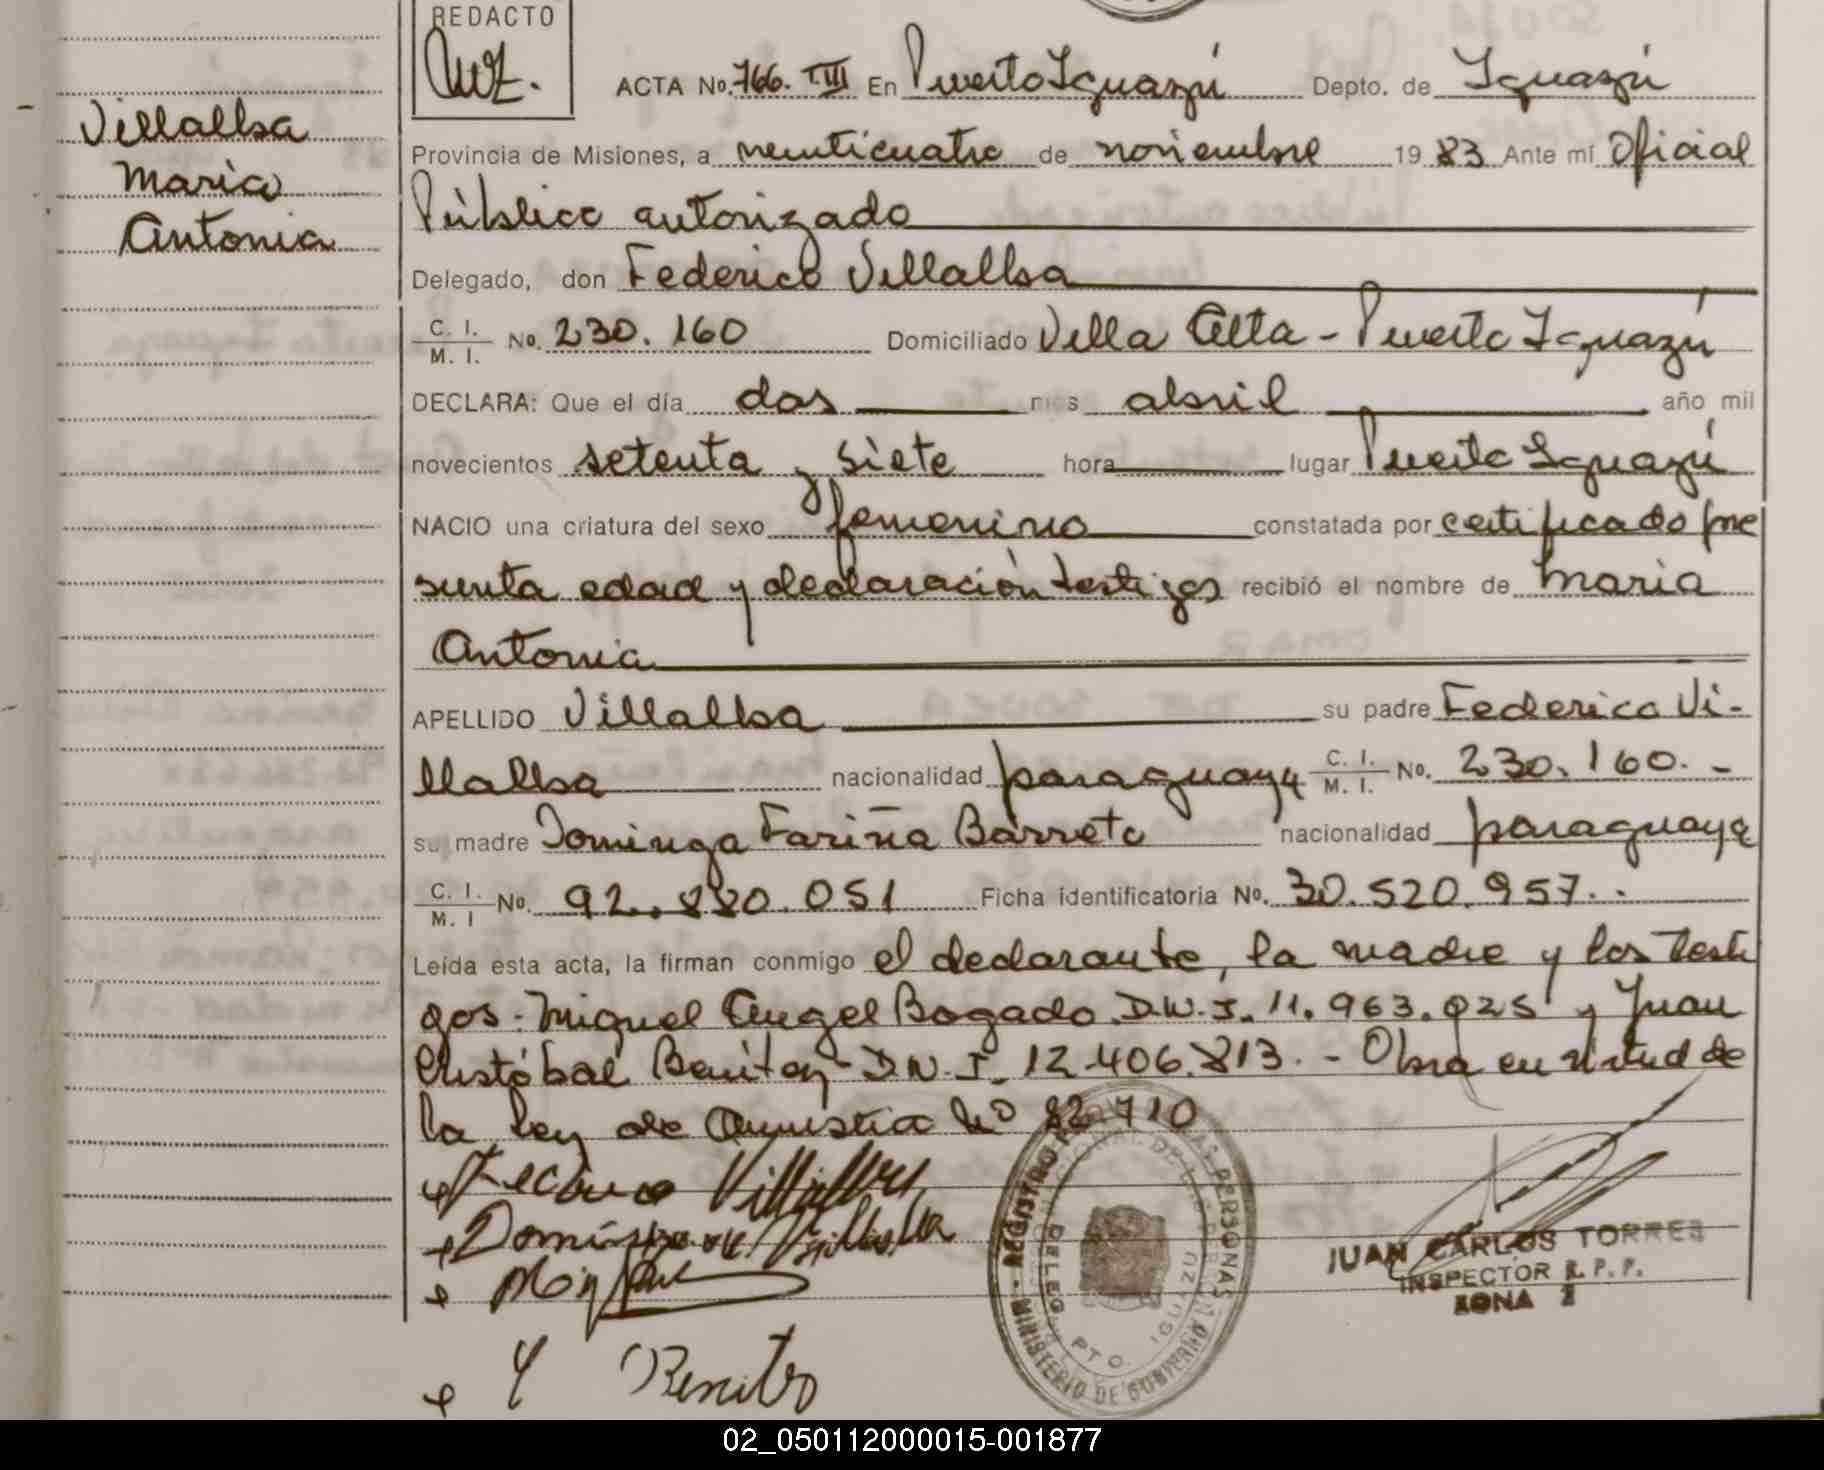 REDACTO
ACTA No. 766. T.III En Puerto Iguazú Depto. de Iguazú
Villalba
Maria
Antonia
Provincia de Misiones, a veinticuatro de noviembre 19 83 Ante mí Oficial
Público autorizado
Delegado, don Federico Villalba
C. I. / M. I. No. 230.160 Domiciliado Villa Alta - Puerto Iguazú
DECLARA: Que el día dos mes abril año mil
novecientos setenta y siete hora lugar Puerto Iguazú
NACIO una criatura del sexo femenino constatada por certificado pre
sunta edad y declaración testigos recibió el nombre de Maria
Antonia
APELLIDO Villalba su padre Federico Vi-
llalba nacionalidad paraguaya C. I. / M. I. No. 230.160. -
su madre Dominga Fariña Barreto nacionalidad paraguaya
C. I. / M. I No. 92.880.051 Ficha identificatoria No. 30.520.957. -
Leída esta acta, la firman conmigo el declarante, la madre y los testi
gos. Miguel Angel Bogado D.N.I. 11.963.025 y Juan
Cristóbal Benitez D.N.I. 12.406.813. - Obra en virtud de
la ley de Amnistia Nº 22.710
Federico Villalba
Dominga de Villalba
Benitez
REGISTRO DE LAS PERSONAS
MINISTERIO DE GOBIERNO
PTO. IGUAZU
JUAN CARLOS TORRES
INSPECTOR R. P. P.
ZONA 2
02_050112000015-001877